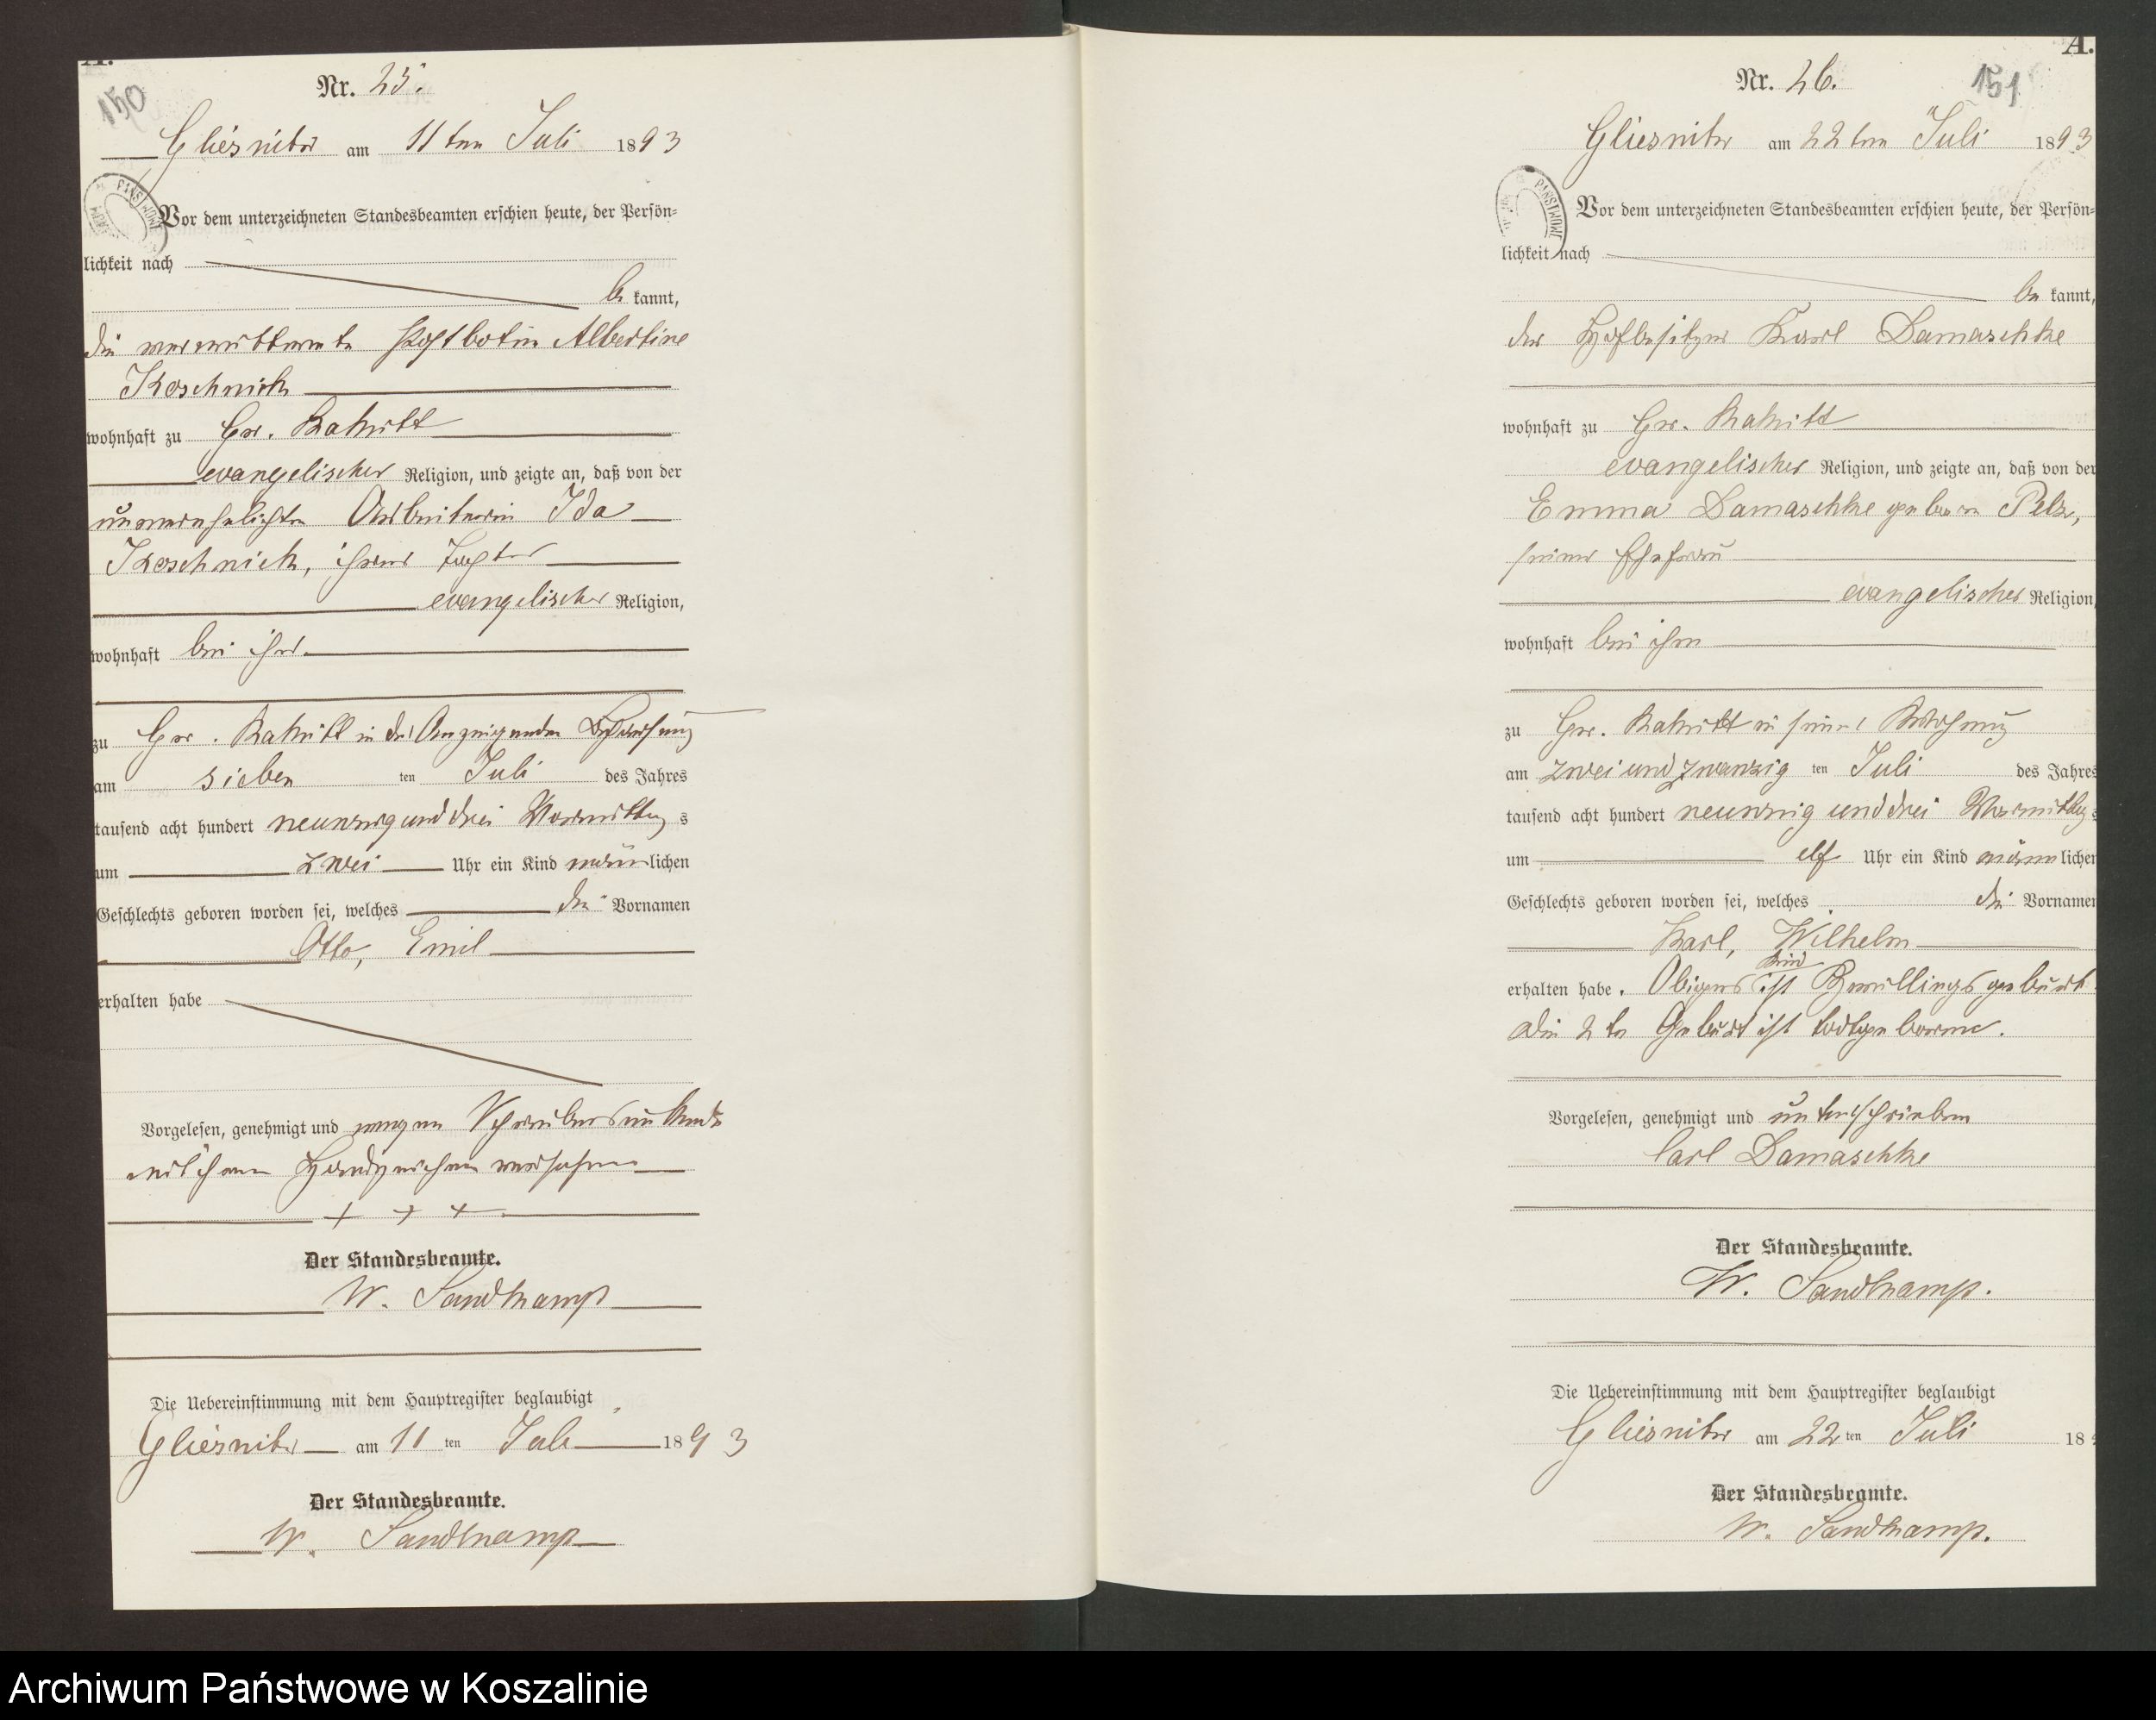 A.
150
Nr. 25.
Gliesnitz am 11ten Juli 1893
Vor dem unterzeichneten Standesbeamten erschien heute, der Persön=
lichkeit nach
be kannt,
die verwittwete Postbotin Albertine
Koschnick
wohnhaft zu Gr. Rakitt
evangelischer Religion, und zeigte an, daß von der
unverehelichten Arbeiterin Ida
Koschnick, ihrer Tochter
evangelischer Religion,
wohnhaft bei ihr
zu Gr. Rakitt in der Anzeigenden Behausung
am sieben ten Juli des Jahres
tausend acht hundert neunzig und drei Vormittag s
um zwei Uhr ein Kind männ lichen
Geschlechts geboren worden sei, welches die Vornamen
Otto, Emil
erhalten habe
Vorgelesen, genehmigt und wegen Schreibensunkunde
mit ihrem Handzeichen versehen
+ + +
Der Standesbeamte.
W. Sandkamp
Die Uebereinstimmung mit dem Hauptregister beglaubigt
Gliesnitz am 11 ten Juli 1893
Der Standesbeamte.
W. Sandkamp
A.
151
Nr. 26.
Gliesnitz am 22ten Juli 1893
PAŃSTWOWE
Vor dem unterzeichneten Standesbeamten erschien heute, der Persön=
lichkeit nach
be kannt,
der Hofbesitzer Karl Damaschke
wohnhaft zu Gr. Rakitt
evangelischer Religion, und zeigte an, daß von der
Emma Damaschke geborne Pelz,
seiner Ehefrau
evangelischer Religion,
wohnhaft bei ihm
zu Gr. Rakitt in seiner Wohnung
am zwei und zwanzig ten Juli des Jahres
tausend acht hundert neunzig und drei Vormittag s
um elf Uhr ein Kind männ lichen
Geschlechts geboren worden sei, welches die Vornamen
Karl, Wilhelm
erhalten habe. Obiges Kind ist Zwillingsgeburt.
Die 2te Geburt ist todtgeborne.
Vorgelesen, genehmigt und unterschrieben
Carl Damaschke
Der Standesbeamte.
W. Sandkamp.
Die Uebereinstimmung mit dem Hauptregister beglaubigt
Gliesnitz am 22 ten Juli 18
Der Standesbeamte.
W. Sandkamp.
Archiwum Państwowe w Koszalinie